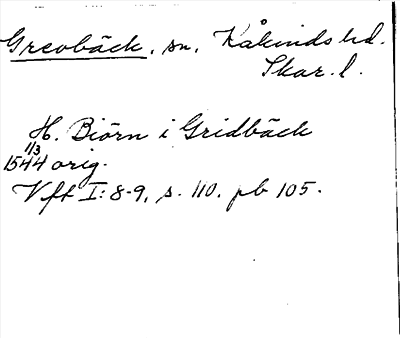 Grevbäck, sn, Kåkinds hd.
Skar. l.
H. Biörn i Gridbäck
1/3
1544 orig.
Vft I: 8-9, s. 110. pb 105.